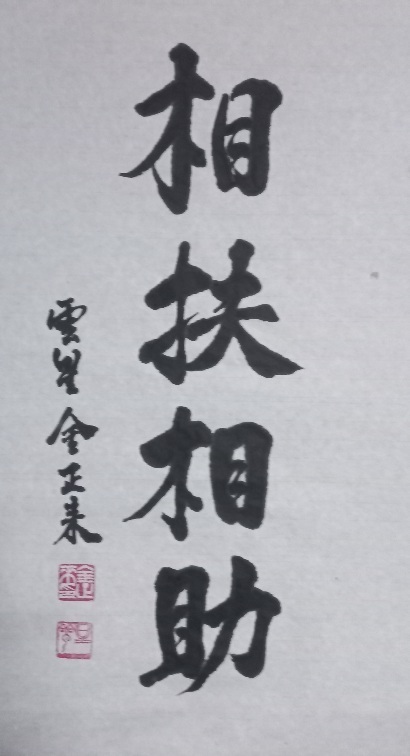 相扶相助
雲星金正来